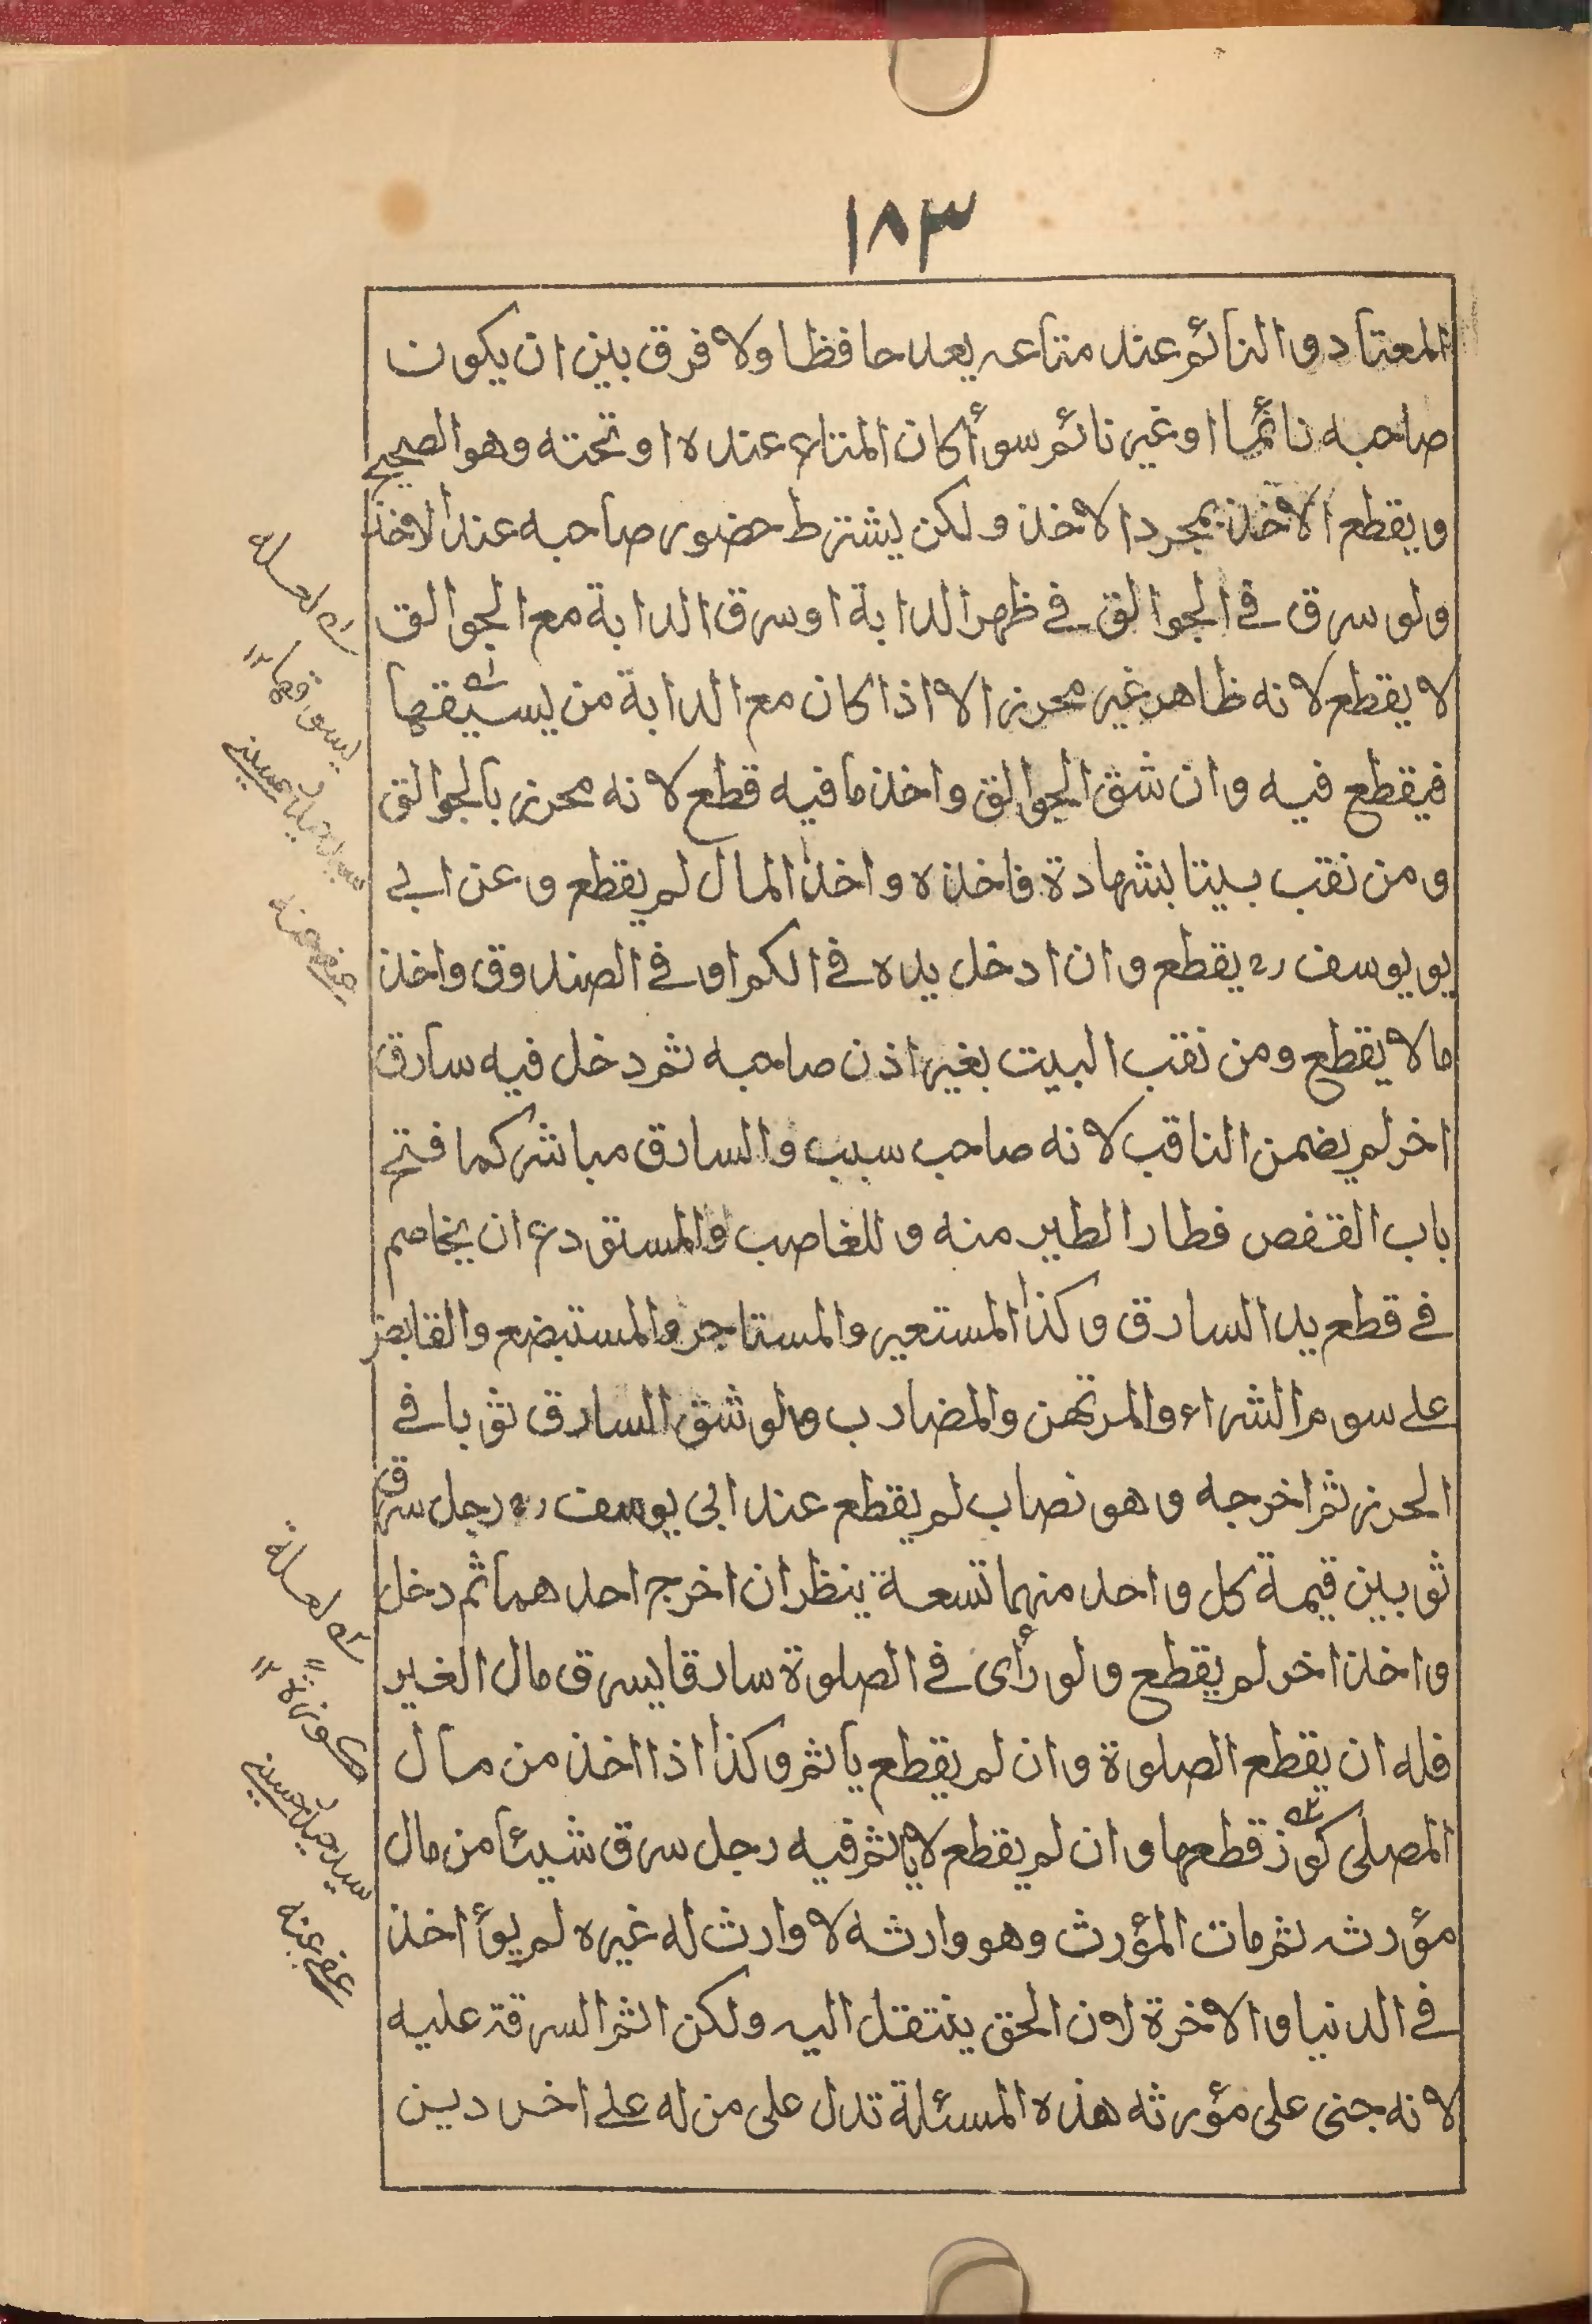 ١٨٣
المعتاد والنائم عند متاعه يعد حافظا ولا فرق بين ان يكون
صاحبه نائما او غير نائم سوأ كان المتاع عنده او تحته وهو الصحيح
ويقطع الاخذ بمجرد الاخذ ولكن يشترط حضور صاحبه عند الاخذ
ولو سرق في الجوالق في ظهر الدابة او سرق الدابة مع الجوالق
لا يقطع لانه ظاهر غير محرز الا اذا كان مع الدابة من يسيقها
فيقطع فيه وان شق الجوالق واخذ ما فيه قطع لانه محرز بالجوالق
ومن نقب بيتا بشهادة فاخذه واخذ المال لم يقطع وعن ابي
يويوسف رح يقطع وان ادخل يده في الكم او في الصندوق واخذ
مالا يقطع ومن نقب البيت بغير اذن صاحبه ثم دخل فيه سارق
اخر لم يضمن الناقب لانه صاحب سبب والسارق مباشر كما فتح
باب القفص فطار الطير منه وللغاصب والمستودع ان يخاصم
في قطع يد السارق وكذا المستعير والمستاجر والمستبضع والقابض
على سوم الشراء والمرتهن والمضارب ولو شق السارق ثوبا في
الحرز ثم اخرجه وهو نصاب لم يقطع عند ابي يوسف رح رجل سرق
ثوبين قيمة كل واحد منهما تسعة ينظر ان اخرج احدهما ثم دخل
واخذ اخر لم يقطع ولو رأى في الصلوة سارقا يسرق مال الغير
فله ان يقطع الصلوة وان لم يقطع ياثم وكذا اذا اخذ من مال
المصلى كوز قطعها وان لم يقطع لا ياثم فيه رجل سرق شيئا من مال
مؤرثه ثم مات المؤرث وهو وارثه لا وارث له غيره لم يؤاخذ
في الدنيا والاخرة لان الحق ينتقل اليه ولكن اثم السرقة عليه
لانه جنى على مؤرثه هذه المسئلة تدل على من له على اخر دين
يسوقها ١٢
عفي عنه